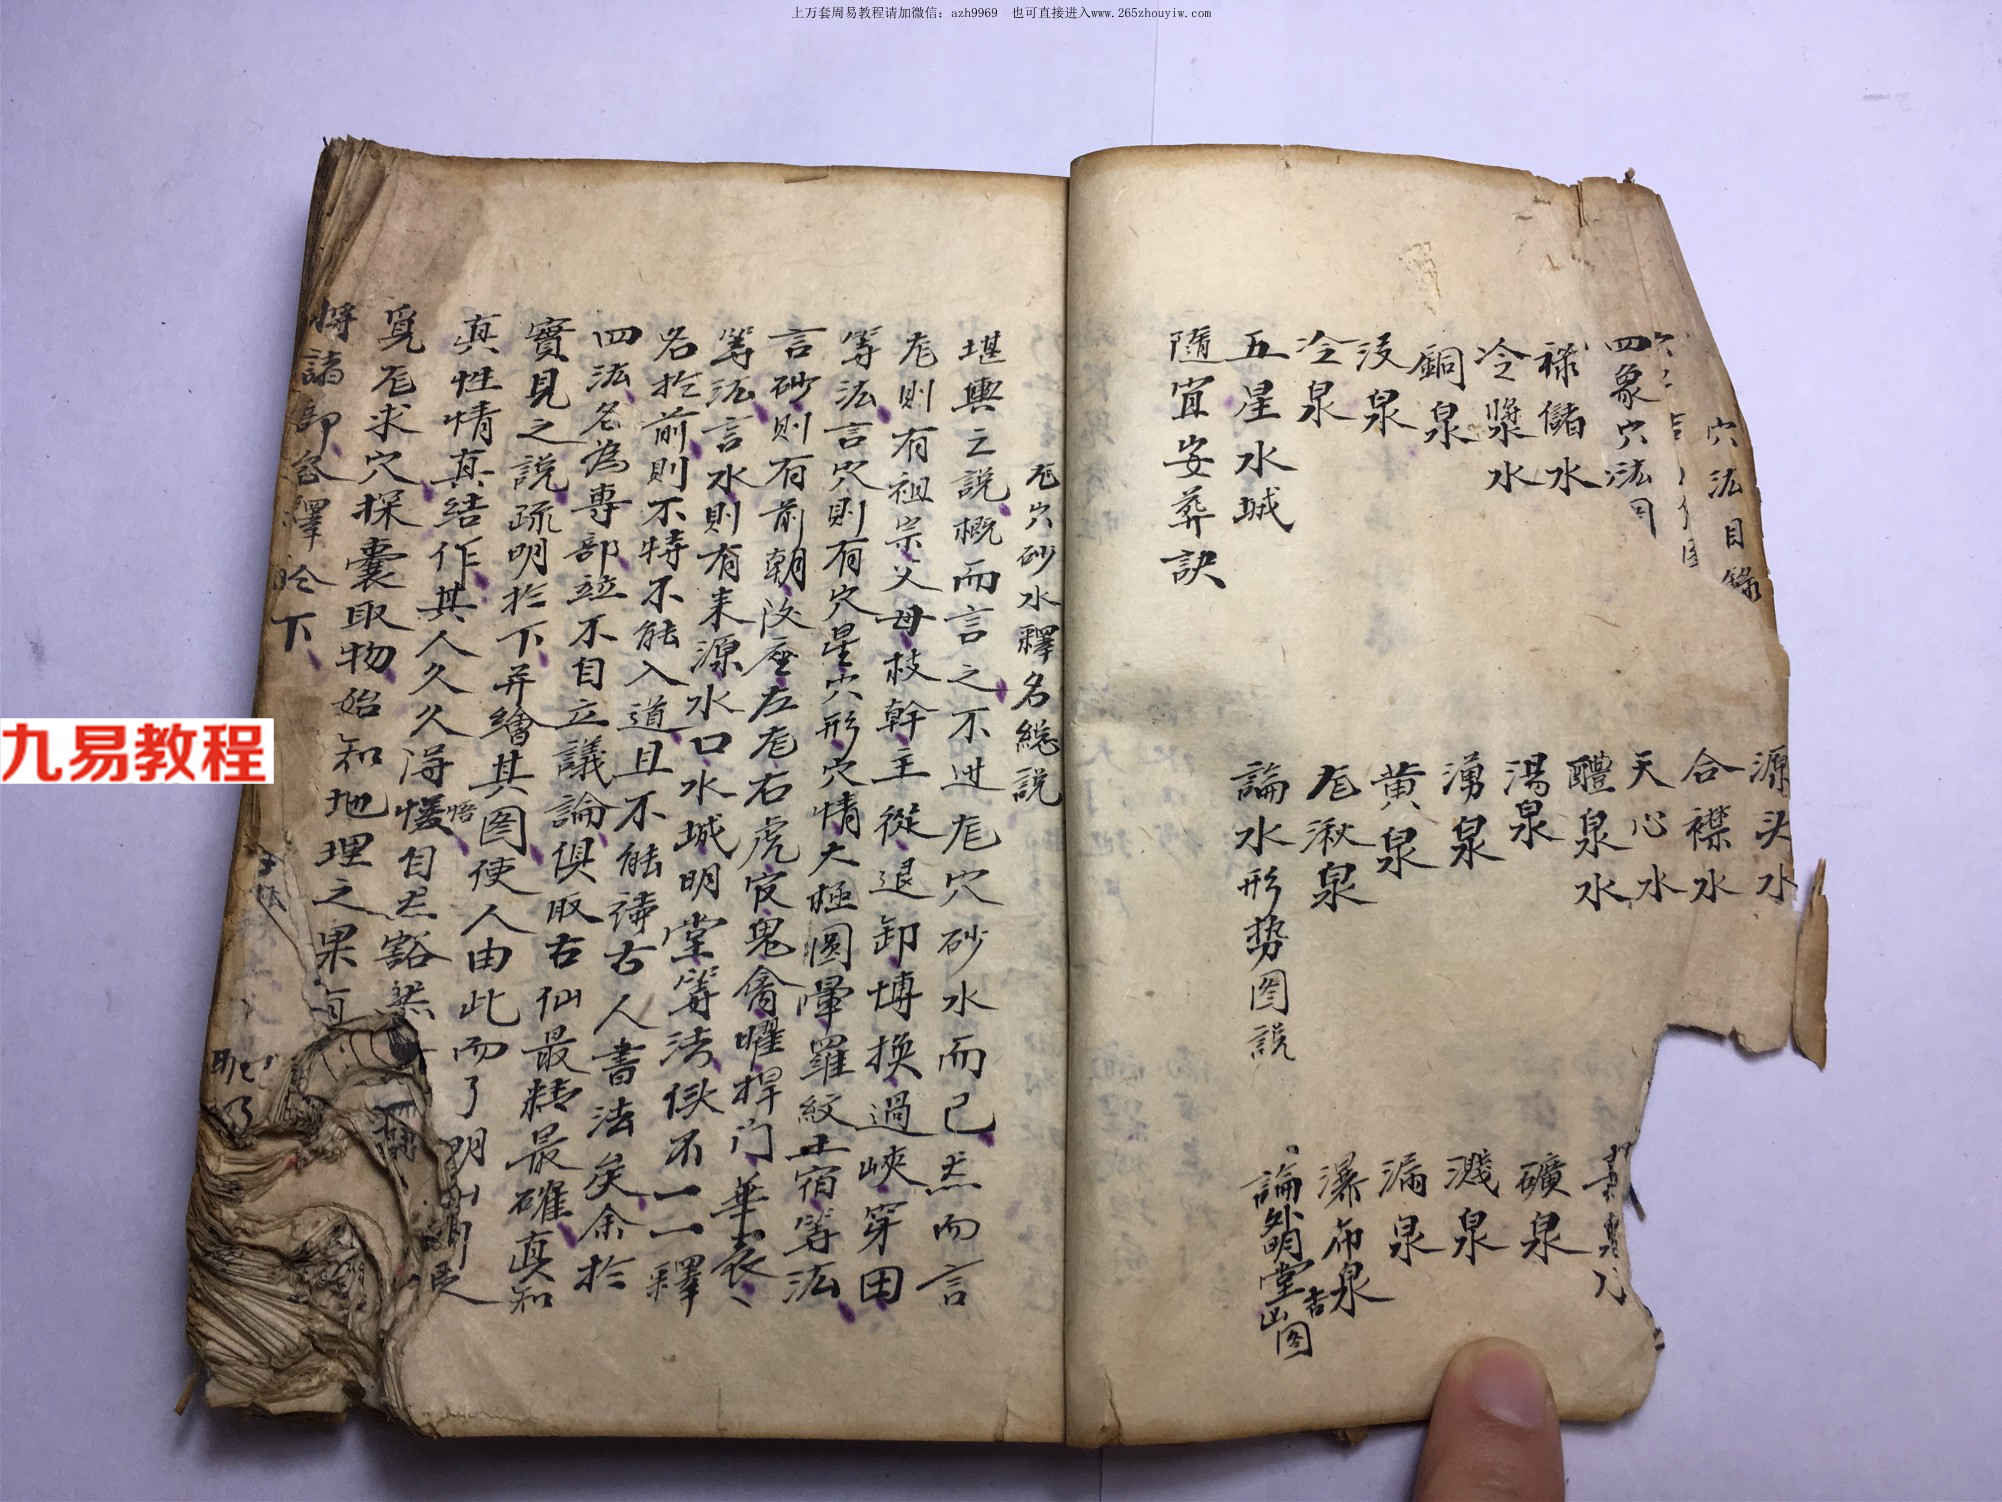 上万套周易教程请加微信：azh9969 也可直接进入www.265zhouyiw.com
九易教程
穴法目錄
四象穴法
源头水
合襟水
天心水
祿儲水
醴泉水
冷漿水
湯泉
礦泉
銅泉
湧泉
濺泉
沒泉
黄泉
漏泉
冷泉
龙湫泉
瀑布泉
五星水城
論水形势图説
論外明堂吉凶图
隨宜安葬訣
龙穴砂水釋名総説
堪輿之説概而言之不过龙穴砂水而已然而言
龙則有祖宗父母枝幹主從退卸博换過峽穿田
等法言穴則有穴星穴形穴情太極圆暈羅紋土宿等法
言砂則有前朝後座左龙右虎官鬼禽曜捍门華表
等法言水則有来源水口水城明堂等法倘不一一釋
名於前則不特不能入道且不能讀古人書法矣余於
四法名為專部並不自立議論俱取古仙最精最確真知
實見之説疏明於下并繪其图使人由此而了明
真性情真結作其人久久得悟自然豁然
覓龙求穴探囊取物始知地理之果有
將諸部名釋於下